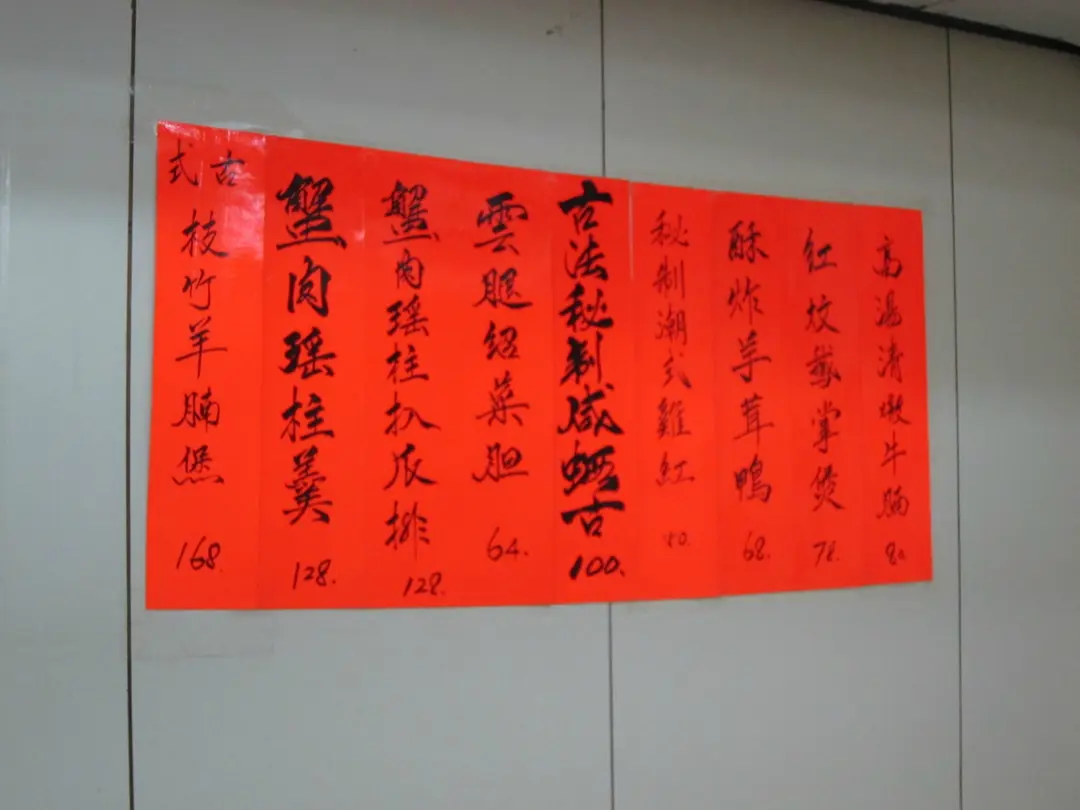 高湯清燉牛腩
紅炆鵝掌煲 78.
酥炸芋茸鴨 68.
秘制潮式雞紅
古法秘制咸古 100.
雲腿紹菜胆 64.
蟹肉瑤柱扒瓜排 128.
蟹肉瑤柱羹 128.
古式枝竹羊腩煲 168.